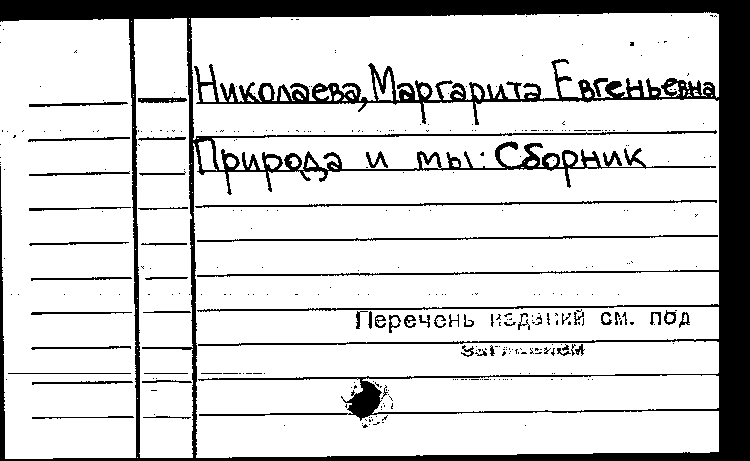 Николаева, Маргарита Евгеньевна
Природа и мы: Сборник
Перечень изданий см. под
заглавием